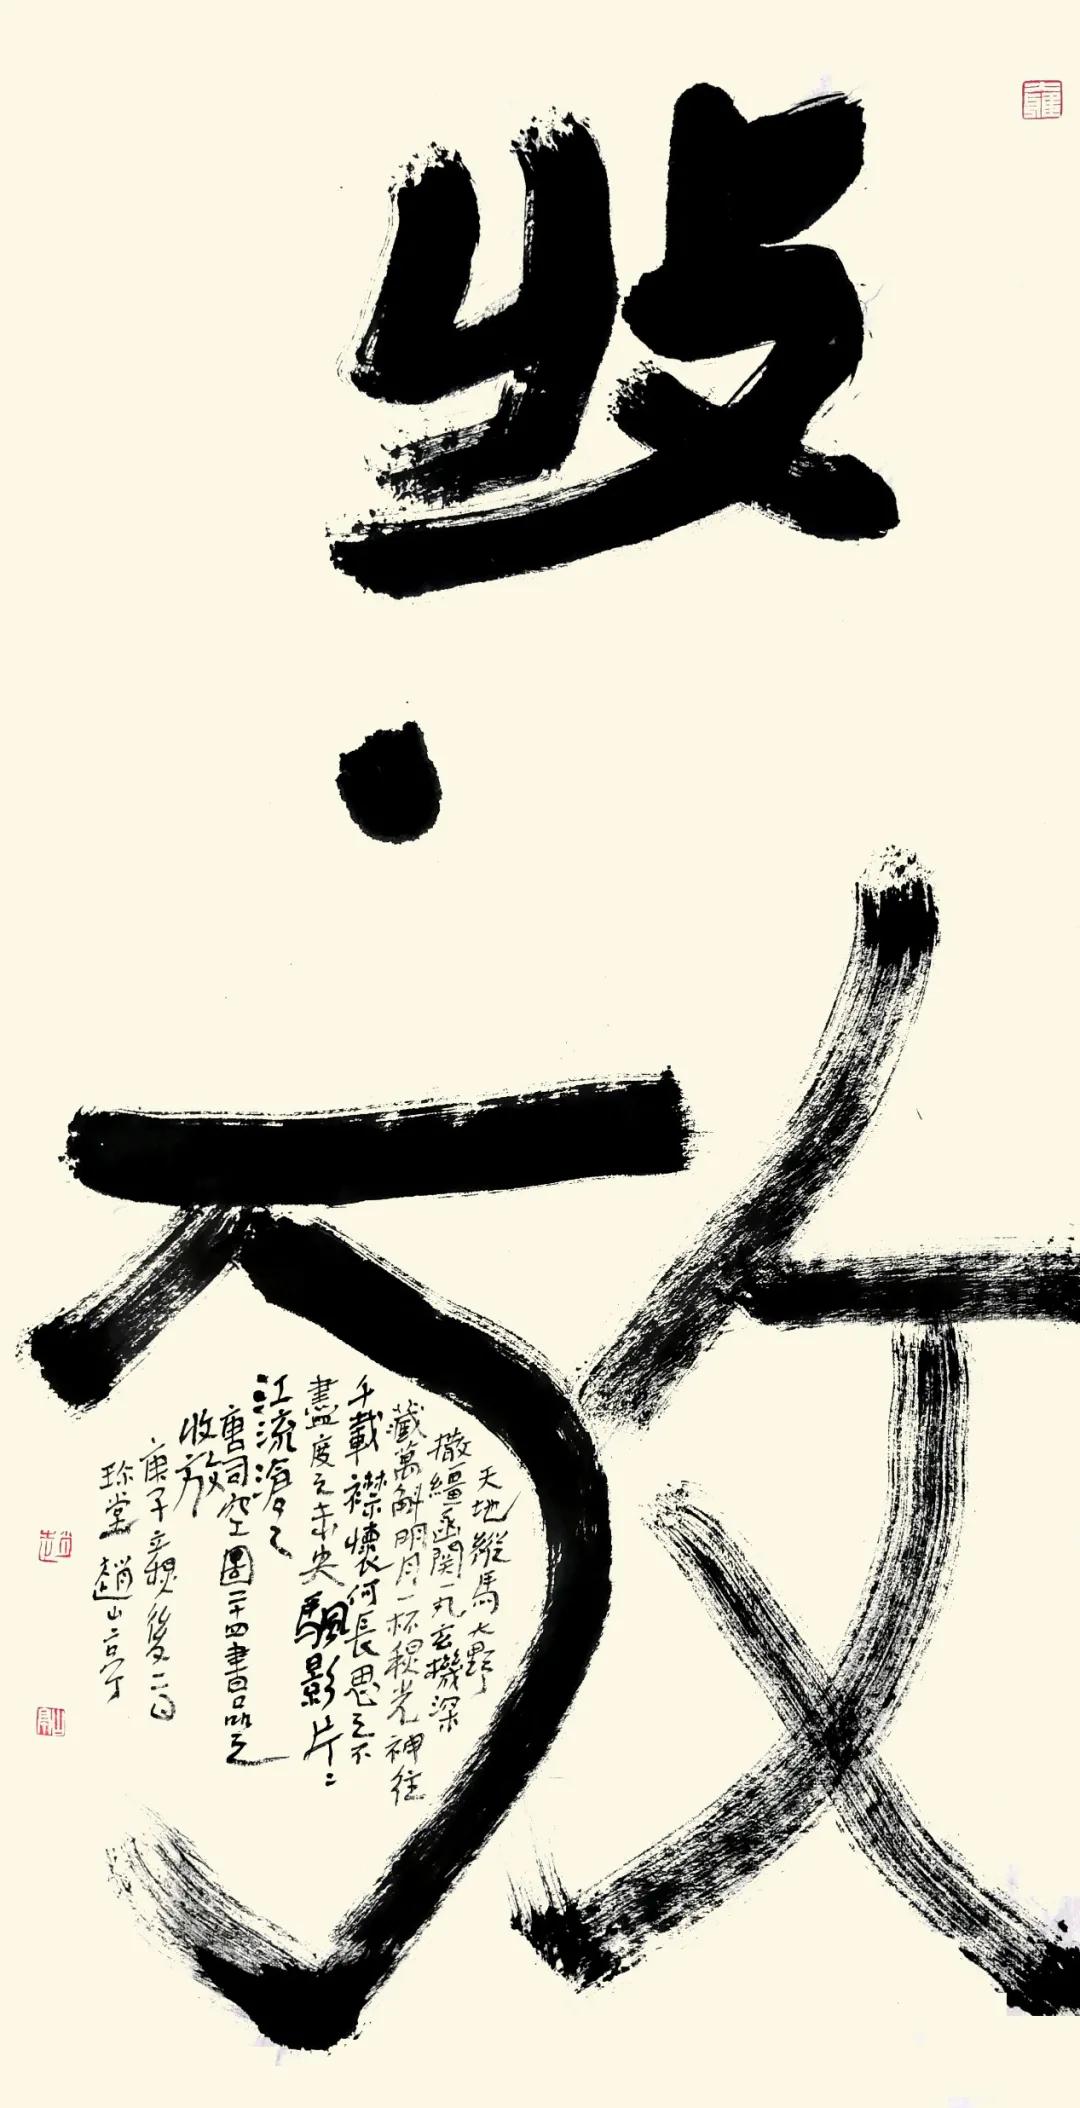 收放
天地縱馬大野
撒繮函關一丸玄機深
藏萬斛明月一杯秋光神往
千載襟懷何長思之不
盡度之未央颿影片片
江流滔之
唐司空圖二十四書品之
收放
庚子立秋後二日
珎堂趙山亭